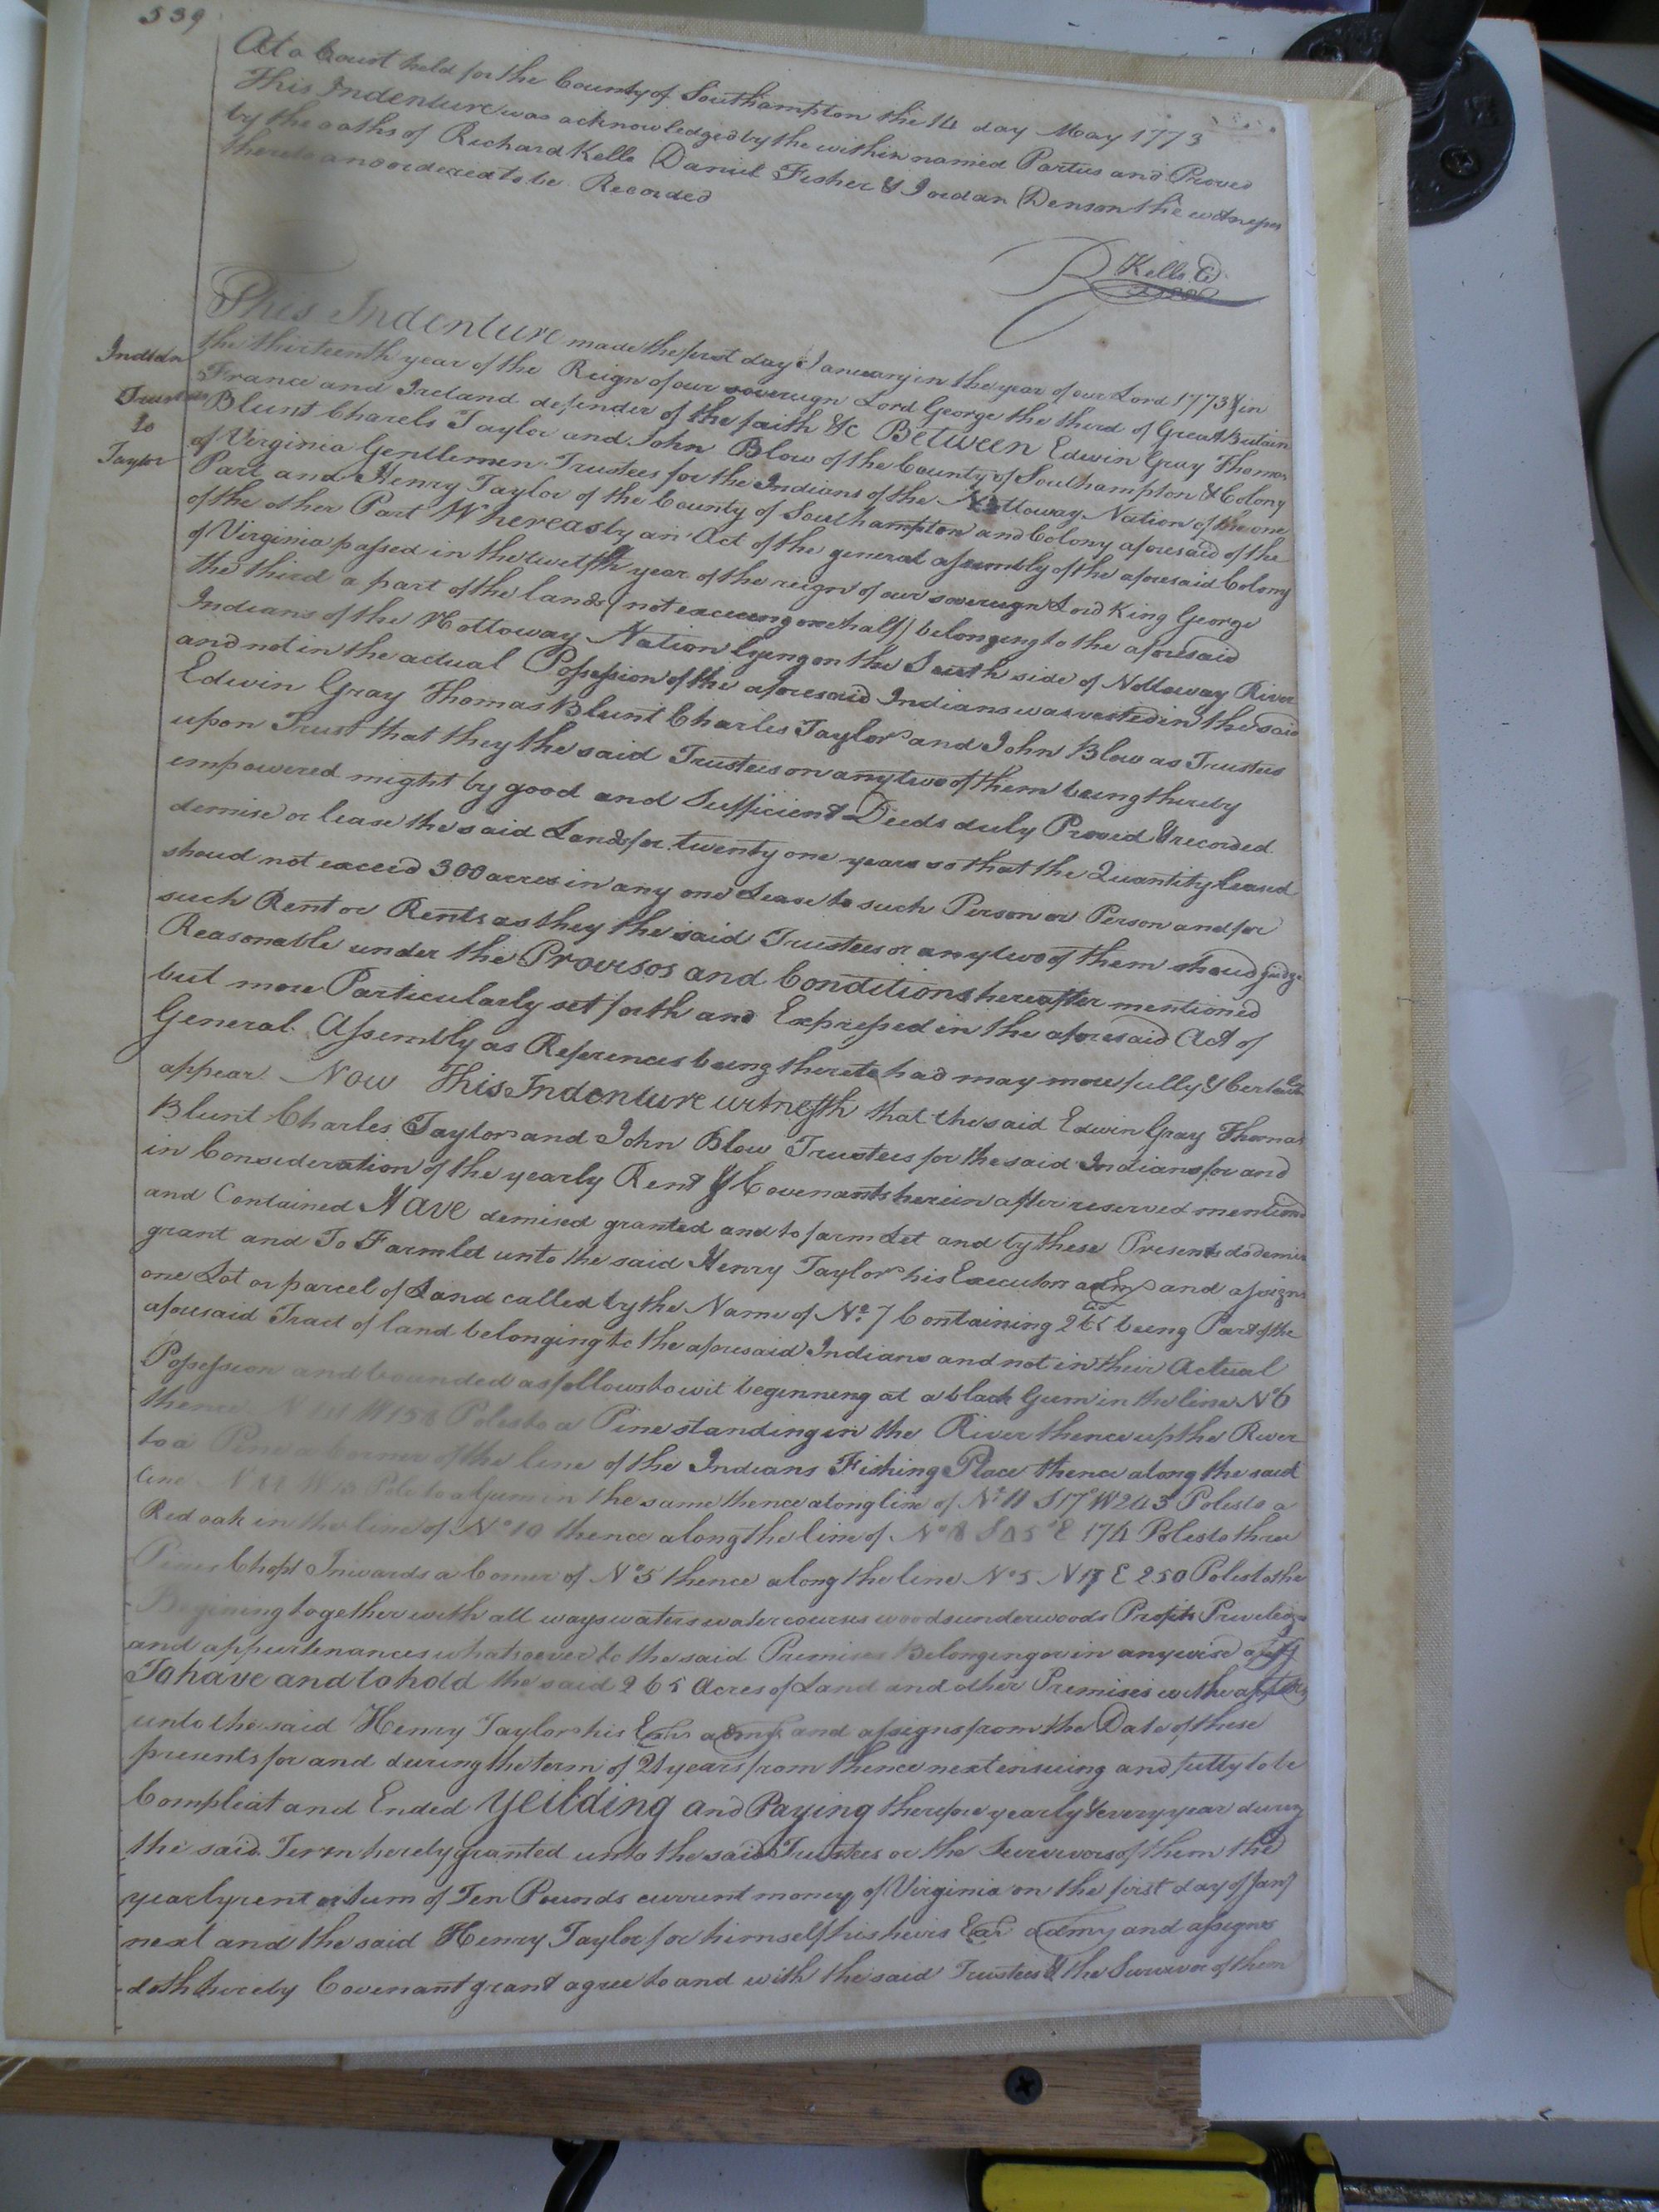 539
At a Court held for the County of Southampton the 14 day May 1773
This Indenture was acknowledged by the within named Parties and Proved
by the oaths of Richard Kello Daniel Fisher & Jordan Denson the witnesses
thereto and ordered to be Recorded
R Kello C
Indian
Trustees
to
Taylor
This Indenture made the first day January in the year of our Lord 1773 & in
the thirteenth year of the Reign of our sovereign Lord George the third of Great Britain
France and Ireland defender of the faith &c Between Edwin Gray Thomas
Blunt Charels Taylor and John Blow of the County of Southampton & Colony
of Virginia Gentlemen Trustees for the Indians of the Nottoway Nation of the one
Part and Henry Taylor of the County of Southampton and Colony aforesaid of the
of the other Part Whereas by an Act of the general assembly of the aforesaid Colony
of Virginia passed in the twelfth year of the reign of our sovereign Lord King George
the third a part of the lands (not exceeng one half) belonging to the aforesaid
Indians of the Nottoway Nation lyeng on the South side of Nottoway River
and not in the actual Possession of the aforesaid Indians was vested in the said
Edwin Gray Thomas Blunt Charles Taylor and John Blow as Trustees
upon Trust that they the said Trustees or any two of them being thereby
empowered might by good and Sufficient Deeds duly Proved & recorded
demise or lease the said Lands for twenty one years so that the Quantity Leased
shoud not exceed 300 acres in any one Lease to such Person or Person and for
such Rent or Rents as they the said Trustees or any two of them shoud judge
Reasonable under the Provisos and Conditions hereafter mentioned
but more Particularly set forth and Expressed in the aforesaid Act of
General Assembly as References being thereto had may more fully &
appear Now This Indenture witnesseth that the said Edwin Gray Thomas
Blunt Charles Taylor and John Blow Trustees for the said Indians for and
in Consideration of the yearly Rent & Covenants herein after reserved mentiond
and Contained Have demised granted and to farm Let and by these Presents do demise
grant and To Farm let unto the said Henry Taylor his Executors adms and assigns
one Lot or parcel of Land called by the Name of No. 7 Containing 265 being Part of the
aforesaid Tract of land belonging to the aforesaid Indians and not in their Actual
Possession and bounded as follows to wit beginneng at a black Gum in the line No 6
thence N W 158 Poles to a Pine standing in the River thence up the River
to a Pine a Corner of the line of the Indians Fishing Place thence along the said
line N W Poles to a Gum in the same thence along line of No. 11 S 17 W 243 Poles to a
Red oak in the line of No 10 thence along the line of No 8 S 45 E 174 Poles to three
Pines Chopt Inwards a Corner of No 5 thence along the line No 5 N 17 E 250 Poles to the
Begining together with all ways waters water courses woods underwoods Profits Privelege
and appurtenances whatsoever to the said Premises Belonging or in anywise
To have and to hold the said 265 Acres of Land and other Premises with
unto the said Henry Taylor his Exrs adms and assigns from the Date of these
presents for and during the term of 21 years from thence next ensuing and fully to be
Compleat and Ended Yeilding and Paying therefore yearly & every year during
the said Term hereby granted unto the said Trustees or the Survivors of them the
yearly rent or sum of Ten Pounds current money of Virginia on the first day of Jany
next and the said Henry Taylor for himself his heirs Exr admy and assigns
doth hereby Covenant grant agree to and with the said Trustees & the Survivor of them